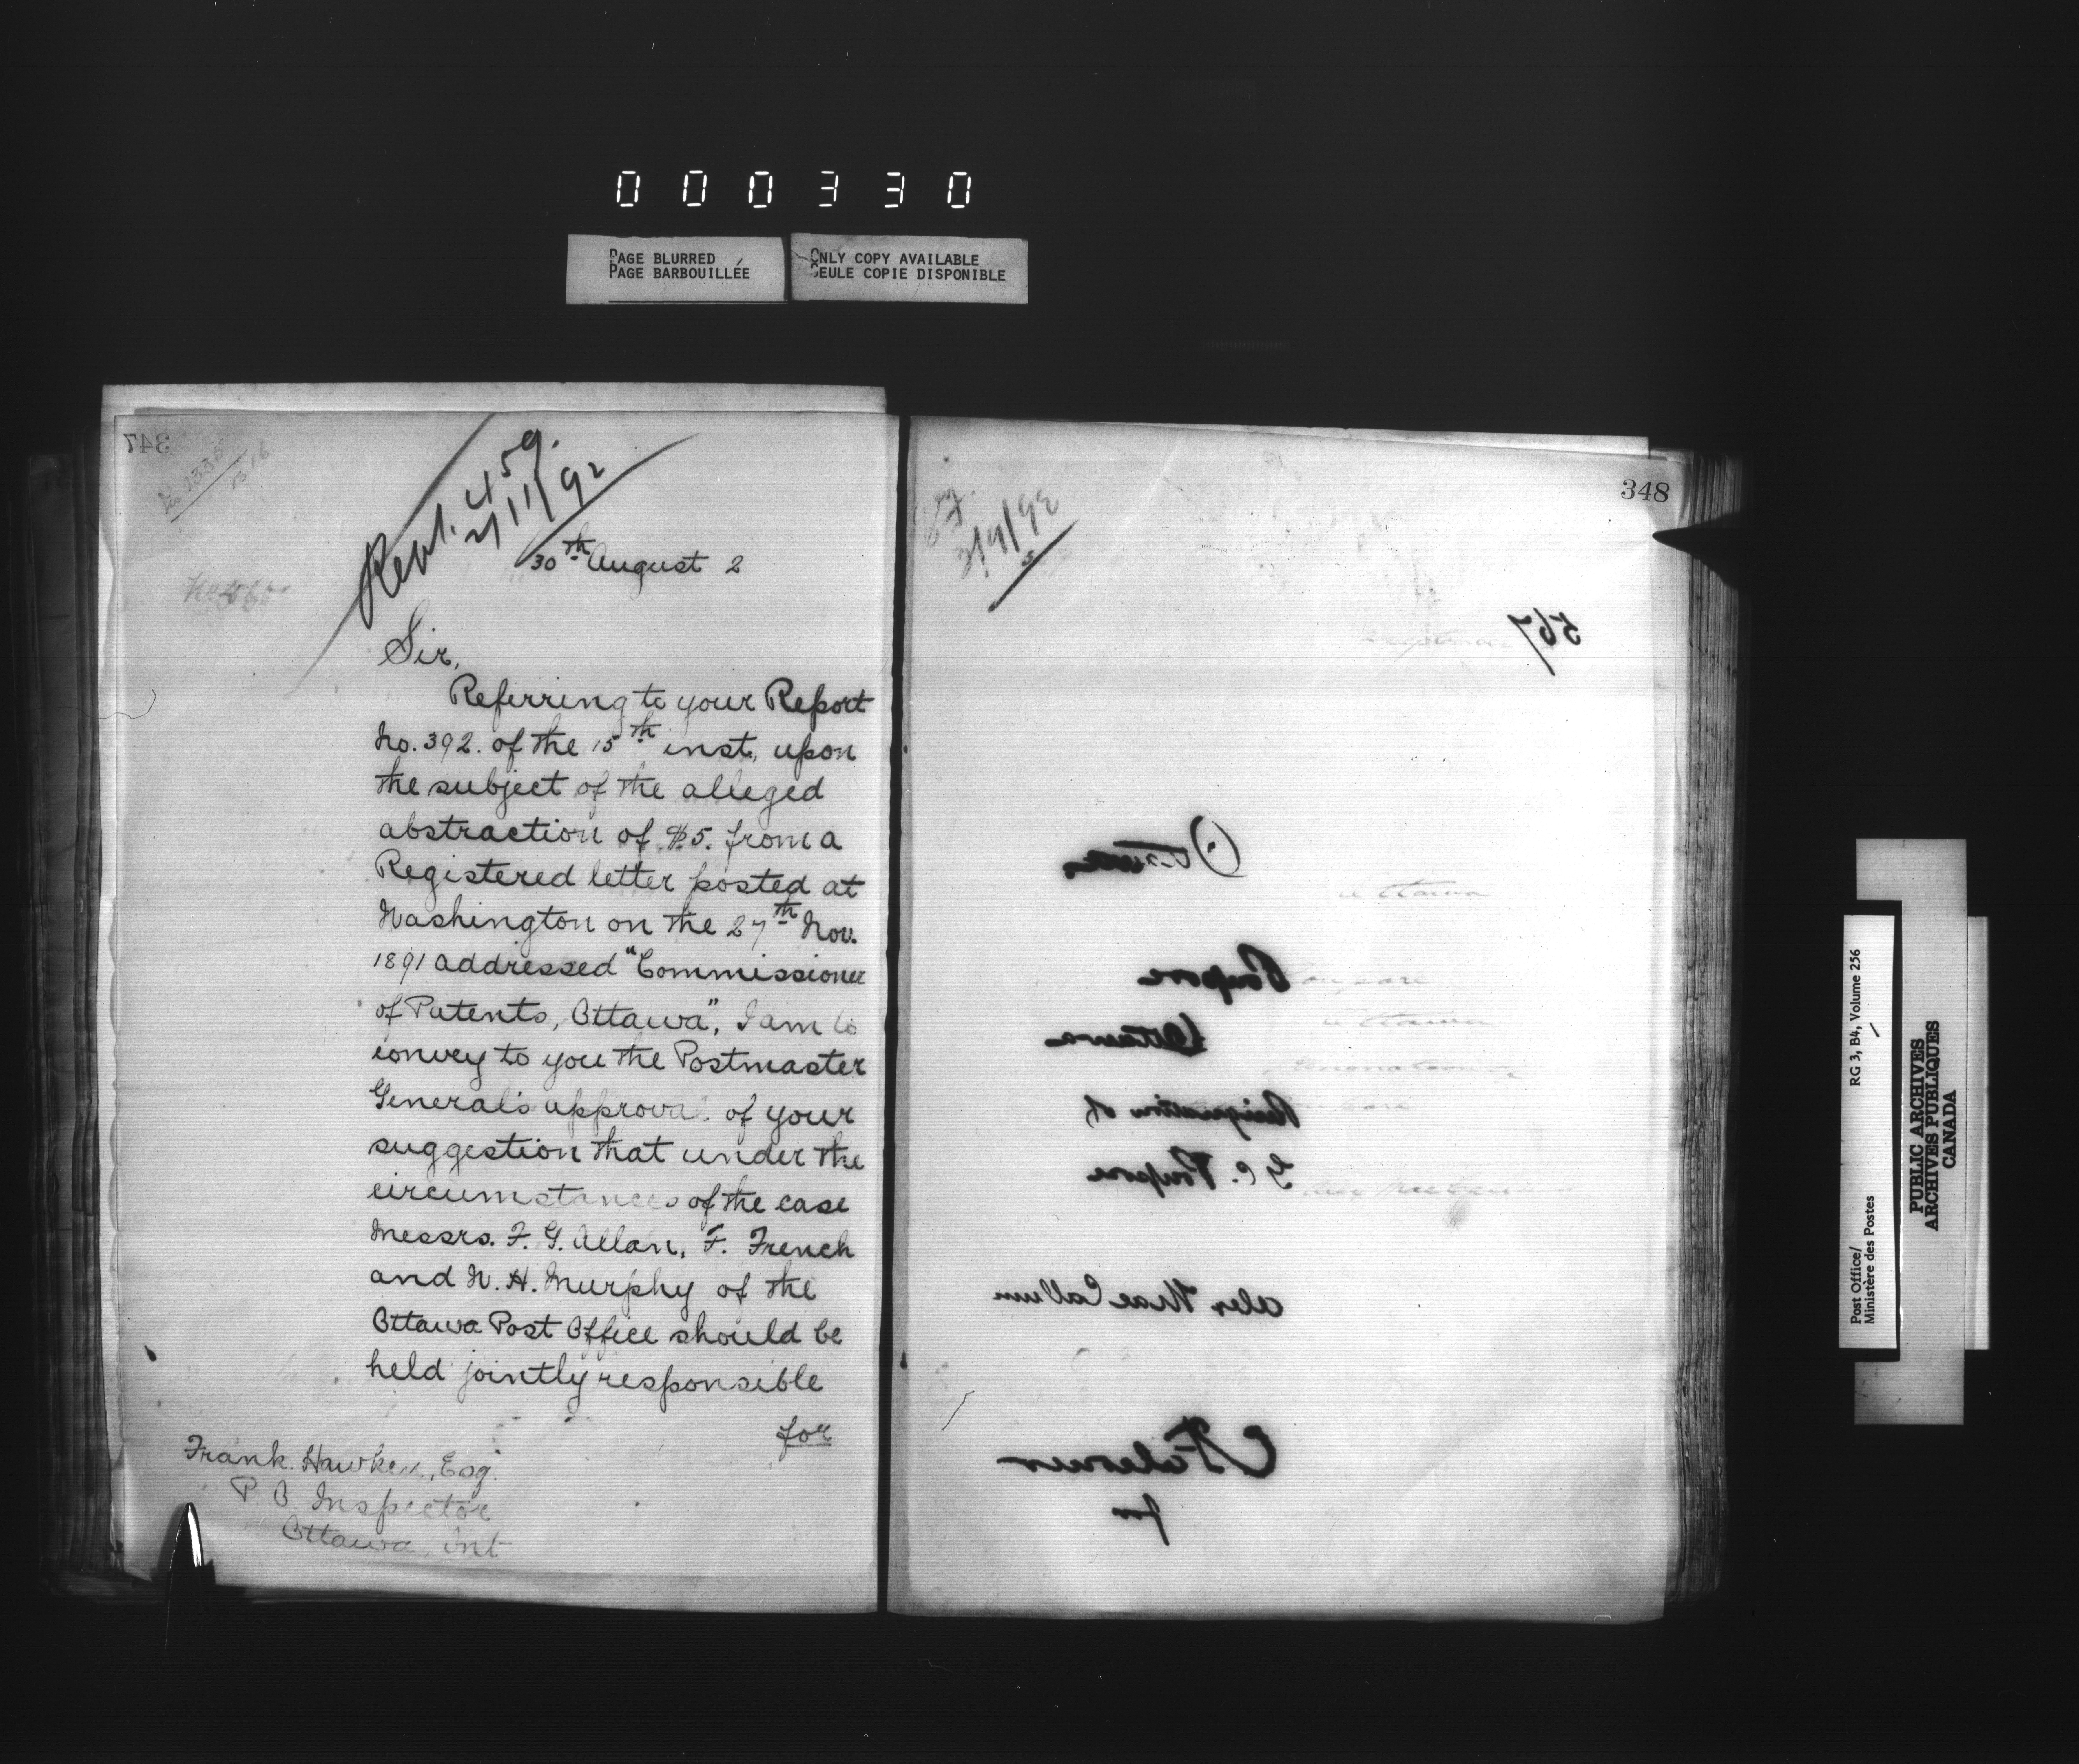 000330
PAGE BLURRED
PAGE BARBOUILLÉE
ONLY COPY AVAILABLE
SEULE COPIE DISPONIBLE
347
459.
2/11/92
30th August 2
Sir,
Referring to your Report
No. 392. of the 15th inst, upon
the subject of the alleged
abstraction of $5. from a
Registered letter posted at
Washington on the 27th Nov.
1891 addressed "Commissioner
of Patents, Ottawa", I am to
convey to you the Postmaster
General's approval of your
suggestion that under the
circumstances of the case
Messrs. F. G. Allan, F. French
and W. H. Murphy of the
Ottawa Post Office should be
held jointly responsible
for
Frank Hawken, Esq.
P. O. Inspector
Ottawa, Ont
348
567
Ottawa
Poupore
Ottawa
Resignation of
Poupore
for
Post Office/
Ministère des Postes
RG 3, B4, Volume 256
PUBLIC ARCHIVES
ARCHIVES PUBLIQUES
CANADA